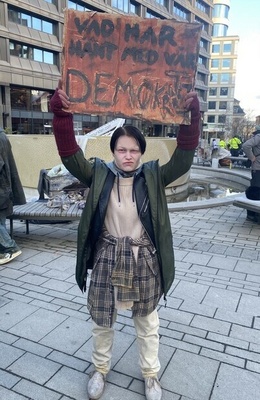 VAD HAR
HÄNT MED VÅR
DEMOKRATI